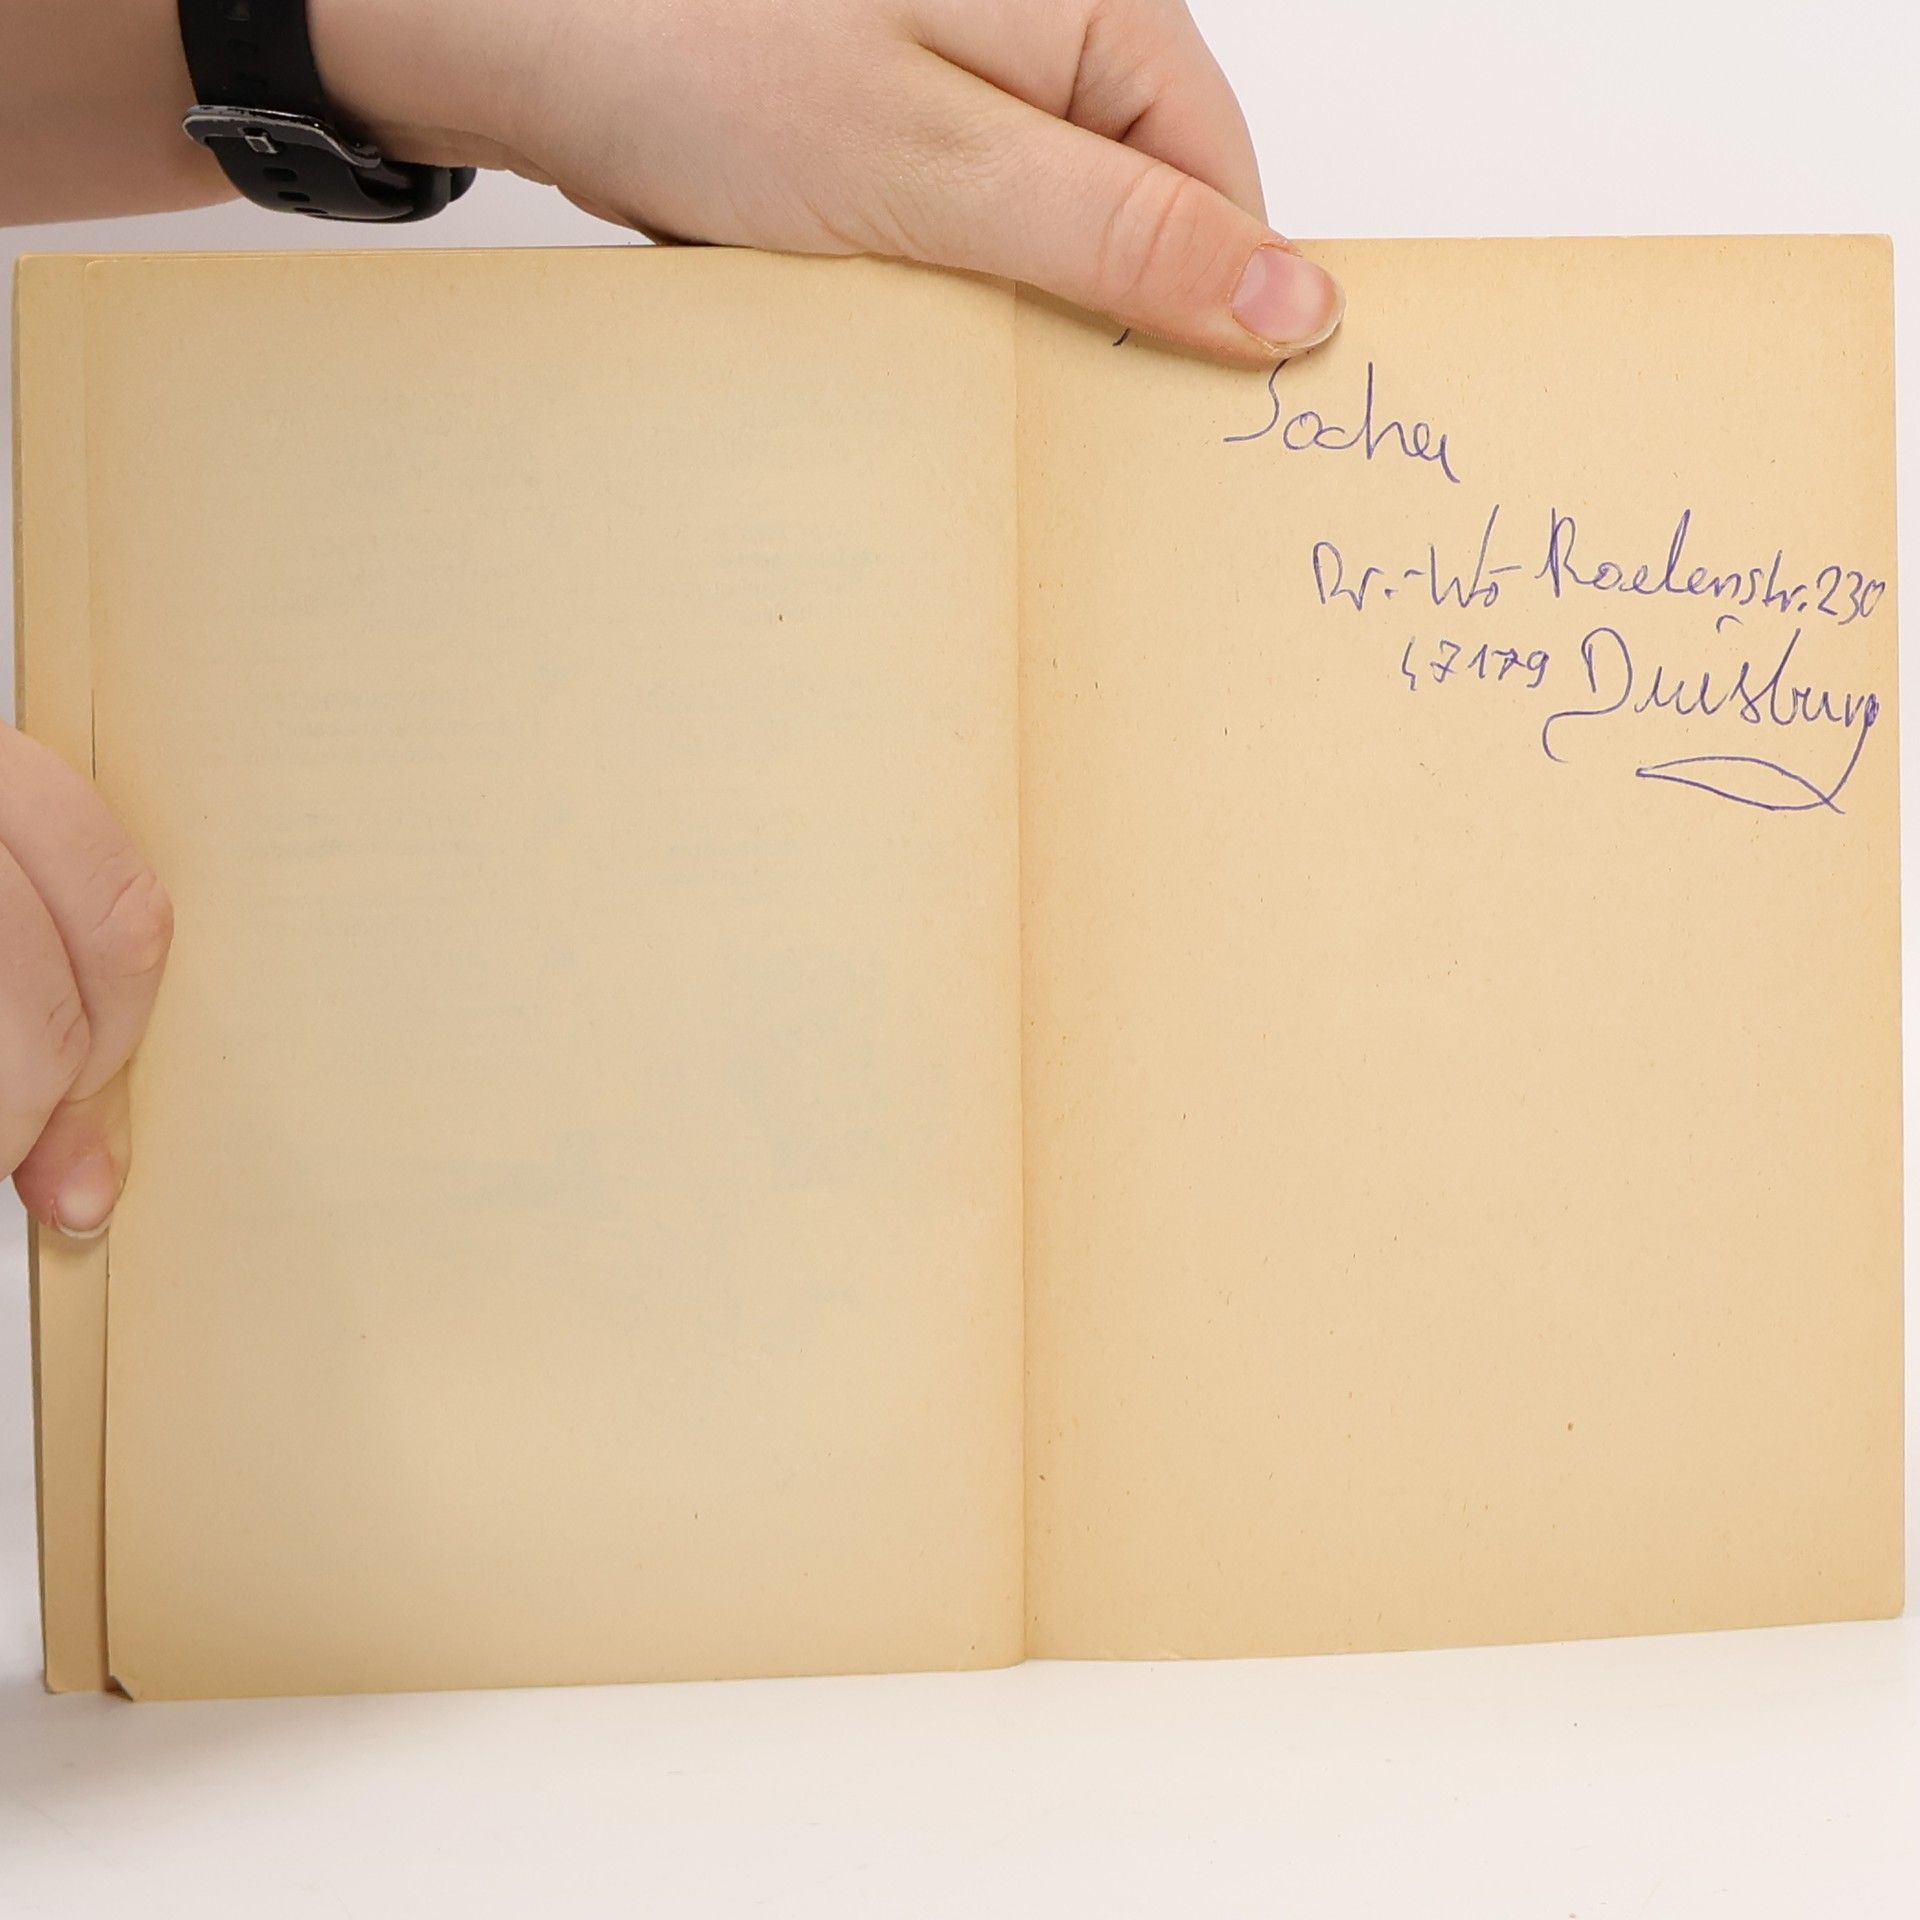 Socher
Dr.-Wi-Roelenstr. 230
47179 Duisburg